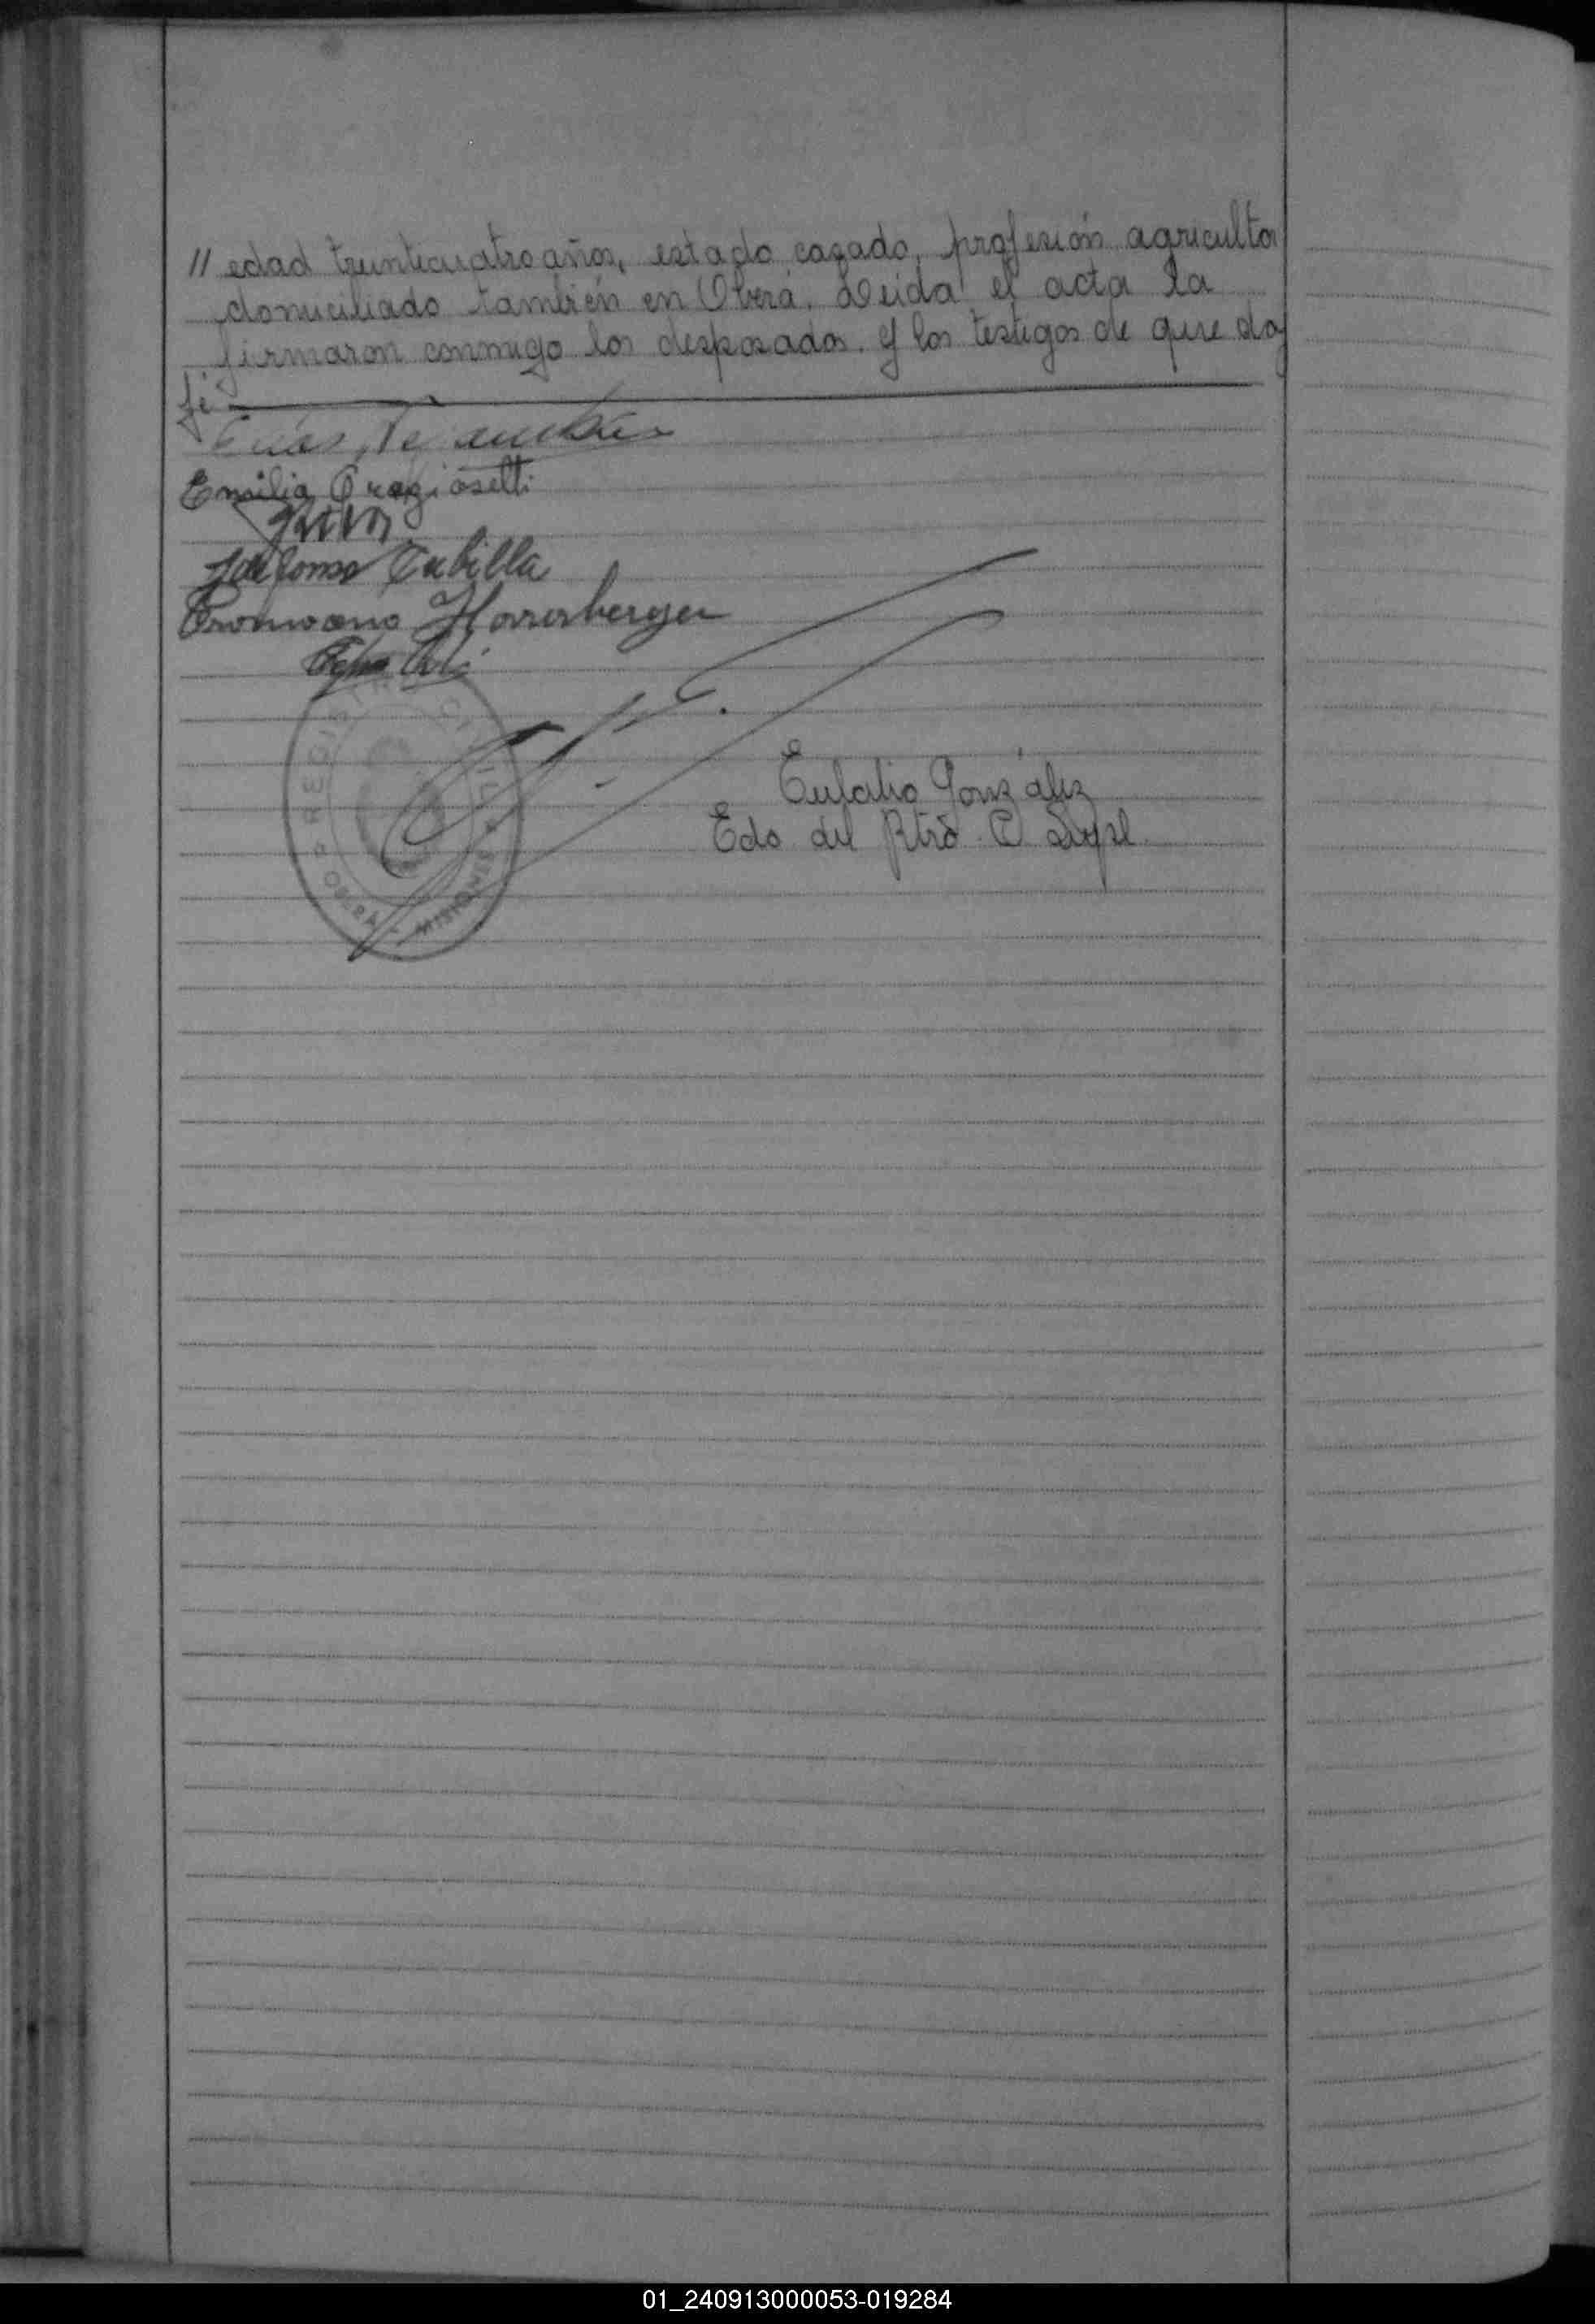 // edad treinticuatro años, estado casado, profesión agricultor
domiciliado también en Oberá. Leida el acta la
firmaron conmigo los desposados. y los testigos de que doy
fé
Emilia
Ildefonso Cubilla
Horrisberger
REGISTRO CIVIL
OBERA - MISIONES
Eufalio González
Edo del Rtro C Supl.
01_240913000053-019284